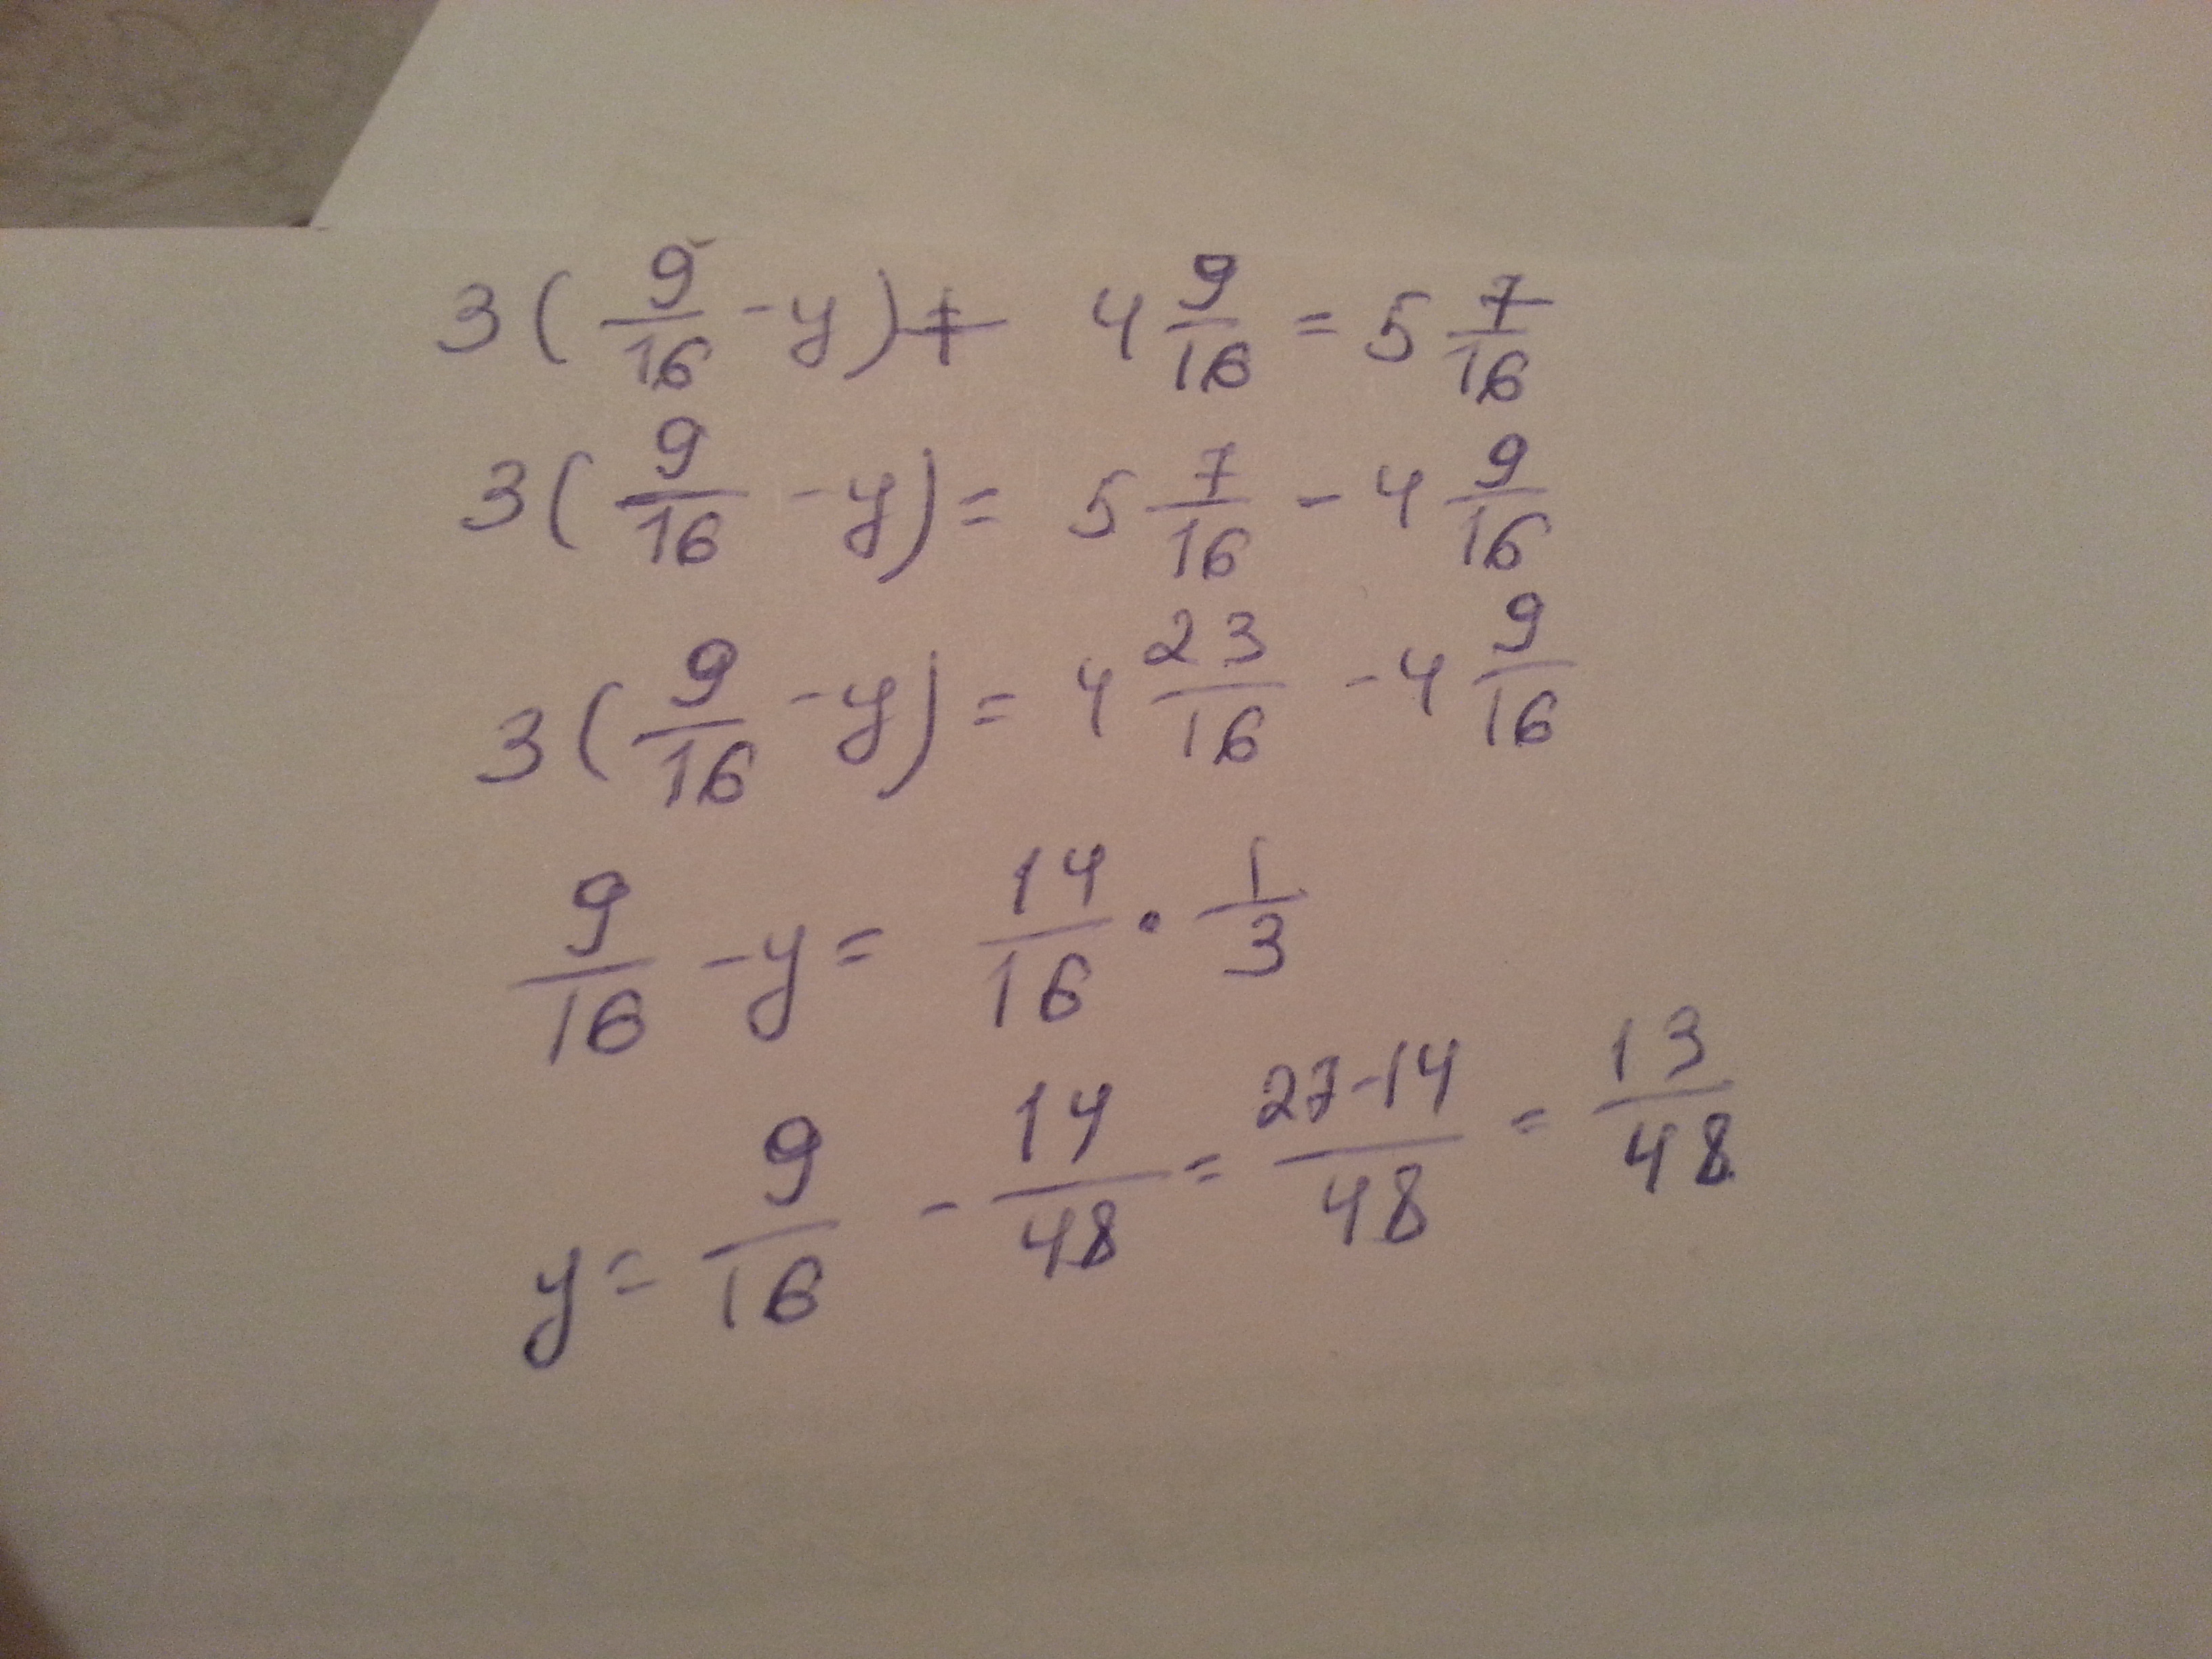 3(9/16 - y) + 4 9/16 = 5 7/16
3(9/16 - y) = 5 7/16 - 4 9/16
3(9/16 - y) = 4 23/16 - 4 9/16
9/16 - y = 14/16 · 1/3
y = 9/16 - 14/48 = 27-14/48 = 13/48